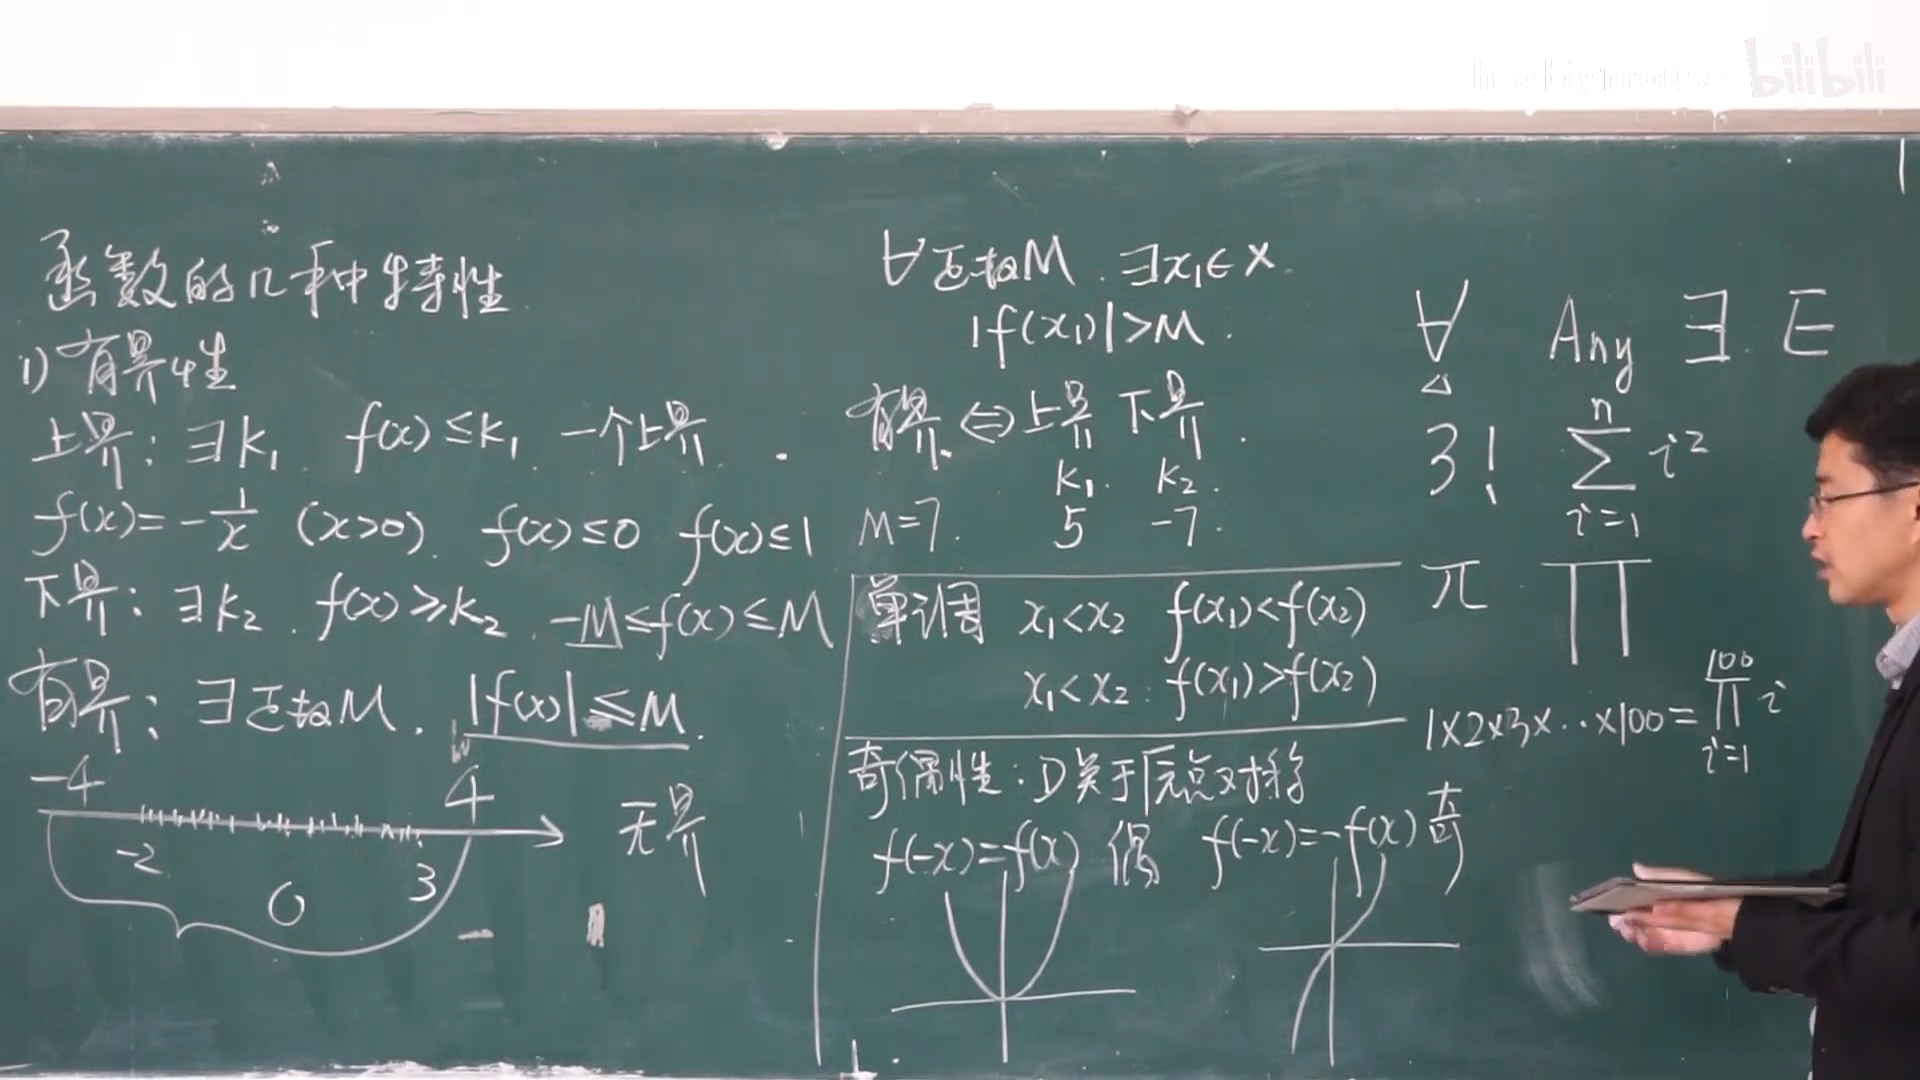 函数的几种特性
1) 有界性
上界: ∃K₁. f(x)≤K₁. 一个上界.
f(x)=-1/x (x>0). f(x)≤0 f(x)≤1
下界: ∃K₂. f(x)≥K₂. -M≤f(x)≤M
有界: ∃正数M. |f(x)|≤M.
-4 4
-2 0 3
无界
∀正数M. ∃x₁∈X.
|f(x₁)|>M.
有界⇔上界 下界.
K₁. K₂.
M=7. 5 -7.
单调 x₁<x₂ f(x₁)<f(x₂)
x₁<x₂. f(x₁)>f(x₂)
奇偶性: D关于原点对称
f(-x)=f(x) 偶 f(-x)=-f(x) 奇
∀ Any ∃. E
3! n∑i=1 i²
π. ∏
1×2×3×...×100=100∏i=1 i
bilibili